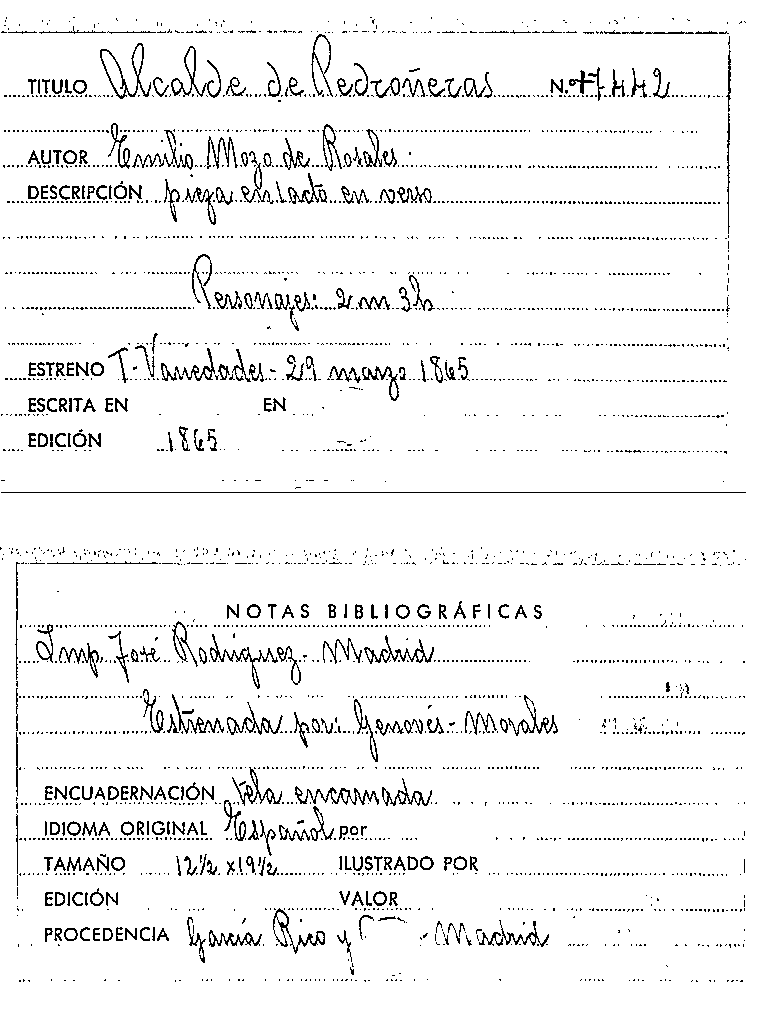 TITULO Alcalde de Pedroñeras N.º 7442
AUTOR Emilio Mozo de Rosales.
DESCRIPCIÓN pieza en 1 acto en verso
Personajes: 2 m 3h
ESTRENO T. Variedades - 29 marzo 1865
ESCRITA EN EN
EDICIÓN 1865
NOTAS BIBLIOGRÁFICAS
Imp. José Rodríguez - Madrid
Estrenada por: Genovés - Morales
ENCUADERNACIÓN tela encarnada
IDIOMA ORIGINAL Español por
TAMAÑO 12½ x 19½ ILUSTRADO POR
EDICIÓN VALOR
PROCEDENCIA García Rico y - Madrid